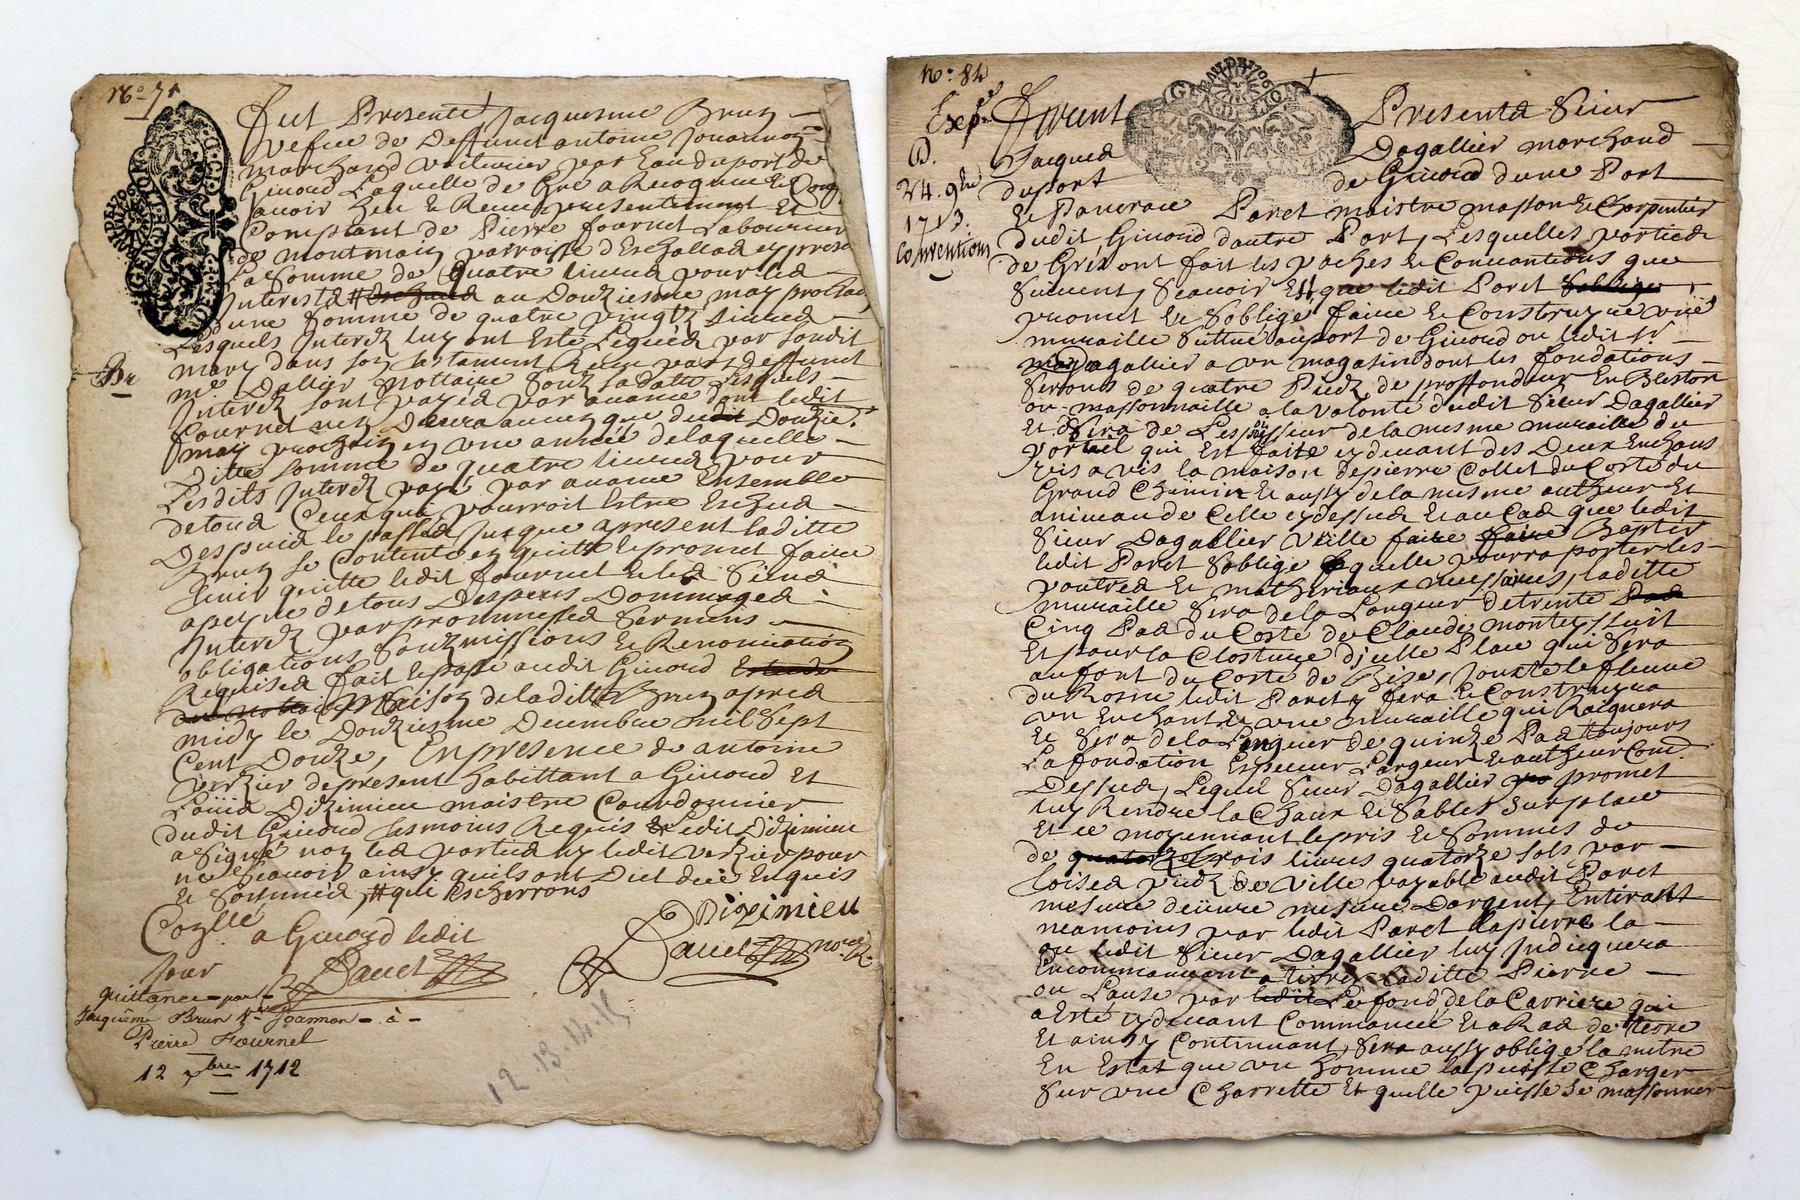 No. 71
Fut Presente Jacquesme Brun
vefue de Deffunct antoine Jouannon
marchand voiturier par Eau du port de
Giuord Laquelle de Gré a Recogneu &
auoir heu & Receu presentement Et
Comptant de Pierre fournel Labourier
de montmain parroisse d'Eschallas cy present
La somme de quatre liures pour les
Interestz # au Douziesme may prochain
d'une somme de quatre vingtz liures
Lesquels Interetz luy ont Esté Legués par sondit
mary dans son testament Receu par deffunct
me Dallier Nottaire soubz sa datte Lesquels
Interetz sont payes par auance dont ledit
fournel n'en Deura aucun que dudit Douzie.
may prochain en une année de laquelle
Ditte somme de quatre liures pour
Lesdits Interetz payé par auance Ensemble
de tous Ceux qui pourroit Estre Escheus
Despuis le passé Jusque a present laditte
Brun se Contente en quitte & promet faire
tenir quitte ledit fournel & les Siens
a peyne de tous Despens Dommages
Interetz par promesses serments
obligations soubzmissions & Renonciation
Requises fait & passé audit Giuord
maison de laditte Brun apres
midy le Douziesme Decembre mil Sept
Cent Douze, En presence de antoine
Verzier de present habittant a Giuord Et
Louis Dizimieu maistre Courdonnier
dudit Giuord tesmoins Requis & ledit Dizimieu
a signé non les parties ny ledit verzier pour
ne sçauoir ainsy quils ont Dict de ce Enquis
& sommés, # que escherrons
Dizimieu
Coll.
a Giuord ledit
Jour
Dauet
Dauet nore R.
quittance par
Jacquême Brun ve Joannon à
Pierre Fournel
12 xbre 1712
12.13.14.15
No. 84
Exp.
D.
24. 9bre
1713.
Conventions
Furent Presents Sieur
Jacques Dagallier marchand
du port de Giuord d'une Part
& Pancrace Paret maistre masson & Charpentier
dudit Giuord d'autre Part, Lesquelles parties
de Gré ont fait les paches & Conuantions que
suiuent, sçauoir Est que ledit Paret
promet & s'oblige faire & Construyre une
muraille sittué au port de Giuord ou ledit Sr.
Dagallier a un magazin dont les fondations
serons de quatre Piedz de proffondeur En Beston
ou massonnaille a la volonté dudit Sieur Dagallier
Et sera de Lespesseur de la mesme muraille du
portail qui Est faite cy deuant des Deux Enchans
vis a vis la maison de pierre Collet du Costé du
Grand Chemin & aussy de la mesme autheur Et
a niueau de Celle cy dessus Et au Cas que ledit
Sieur Dagallier veille faire Baptir
ledit Paret s'oblige quelle pourra porter les
poutres & matheriaux necessaires, laditte
muraille sera de la Longueur de trente
Cinq Pas du Costé de Claude montessuit
Et pour la Closture d'icelle Place qui sera
au font du Costé de Bize, Jouxte le fleuue
du Rosne ledit Paret y fera & Construyra
un Enchant & une muraille qui Raignera
& sera de la Longueur de quinze Pas toujours
La fondation Espesseur Largeur & autheur Com.
Dessus, Lequel Sieur Dagallier promet
luy Rendre la Chaux & sables sur place
Et ce moyennant le pris & sommes de
de trois liures quatorze sols par
toises piedz de Ville payable audit Paret
mesure d'euure mesure d'argent, Entirant
neamoins par ledit Paret la pierre la
ou ledit Sieur Dagallier luy Indiquera
En commançant a tirrer laditte Pierre
ou Lause par Le fond de la Carriere qui
a Esté cy deuant Commancée Et a Ras de terre
Et ainsy Continuant, sera aussy obligé la mettre
En Estat que un homme la puisse Charger
Sur une Charrette Et quelle puisse se massonner